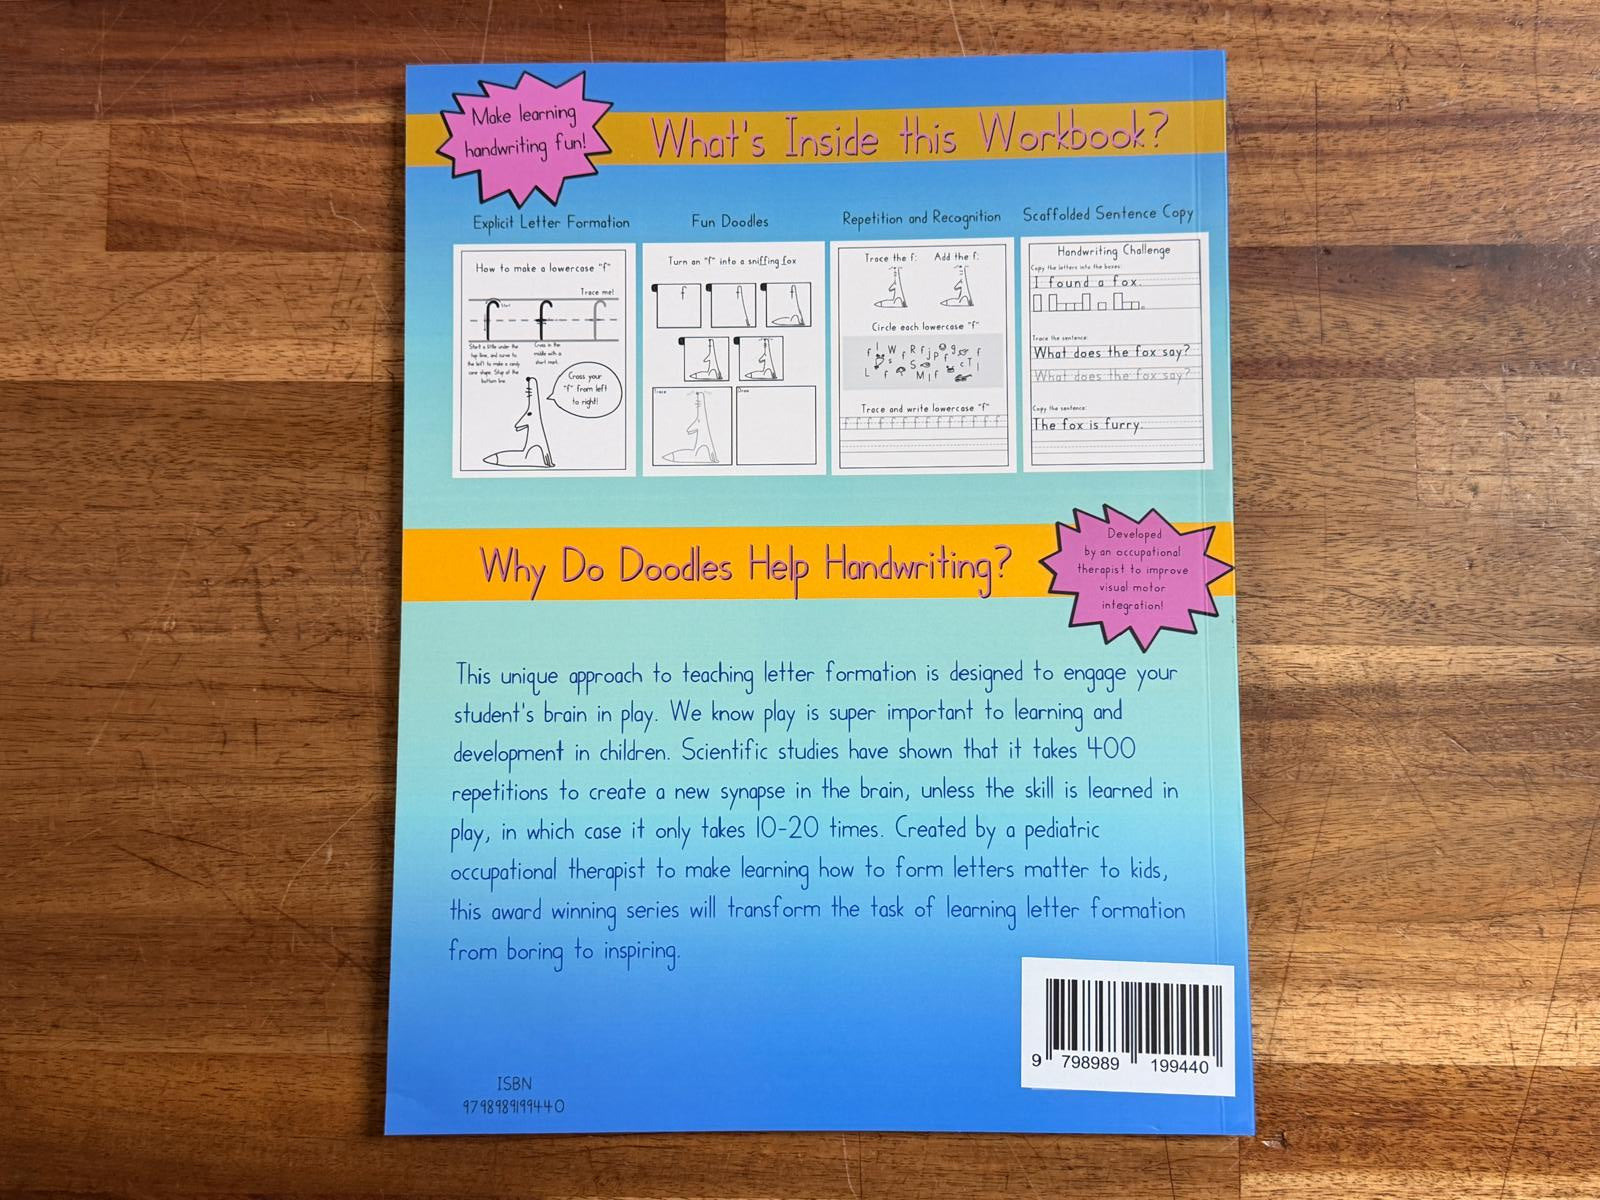 Make learning
handwriting fun!
What's Inside this Workbook?
Explicit Letter Formation
Fun Doodles
Repetition and Recognition
Scaffolded Sentence Copy
How to make a lowercase "f"
Trace me!
Start
f f f
Start a little under the
top line, and curve to
the left to make a candy
cane shape. Stop at the
bottom line.
Cross in the
middle with a
short mark.
Cross your
"f" from left
to right!
Turn an "f" into a sniffing fox
f
Trace
Draw
Trace the f:
Add the f:
Circle each lowercase "f"
Trace and write lowercase "f"
f f f f f f f f f f f f f
Handwriting Challenge
Copy the letters into the boxes:
I found a fox.
Trace the sentence:
What does the fox say?
What does the fox say?
Copy the sentence:
The fox is furry.
Why Do Doodles Help Handwriting?
Developed
by an occupational
therapist to improve
visual motor
integration!
This unique approach to teaching letter formation is designed to engage your
student's brain in play. We know play is super important to learning and
development in children. Scientific studies have shown that it takes 400
repetitions to create a new synapse in the brain, unless the skill is learned in
play, in which case it only takes 10-20 times. Created by a pediatric
occupational therapist to make learning how to form letters matter to kids,
this award winning series will transform the task of learning letter formation
from boring to inspiring.
ISBN
9798989199440
9 798989 199440